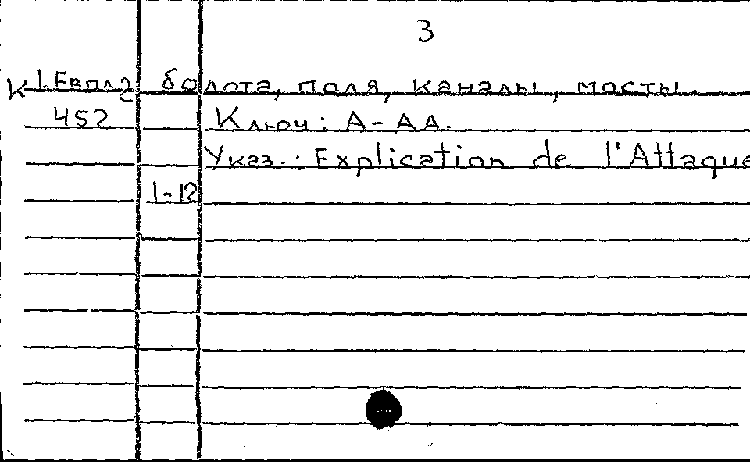 3
К 1.Евпл2 болота, поля, каналы, мосты
452 Ключ: А-АА.
Указ.: Explication de l'Attaque
1-12